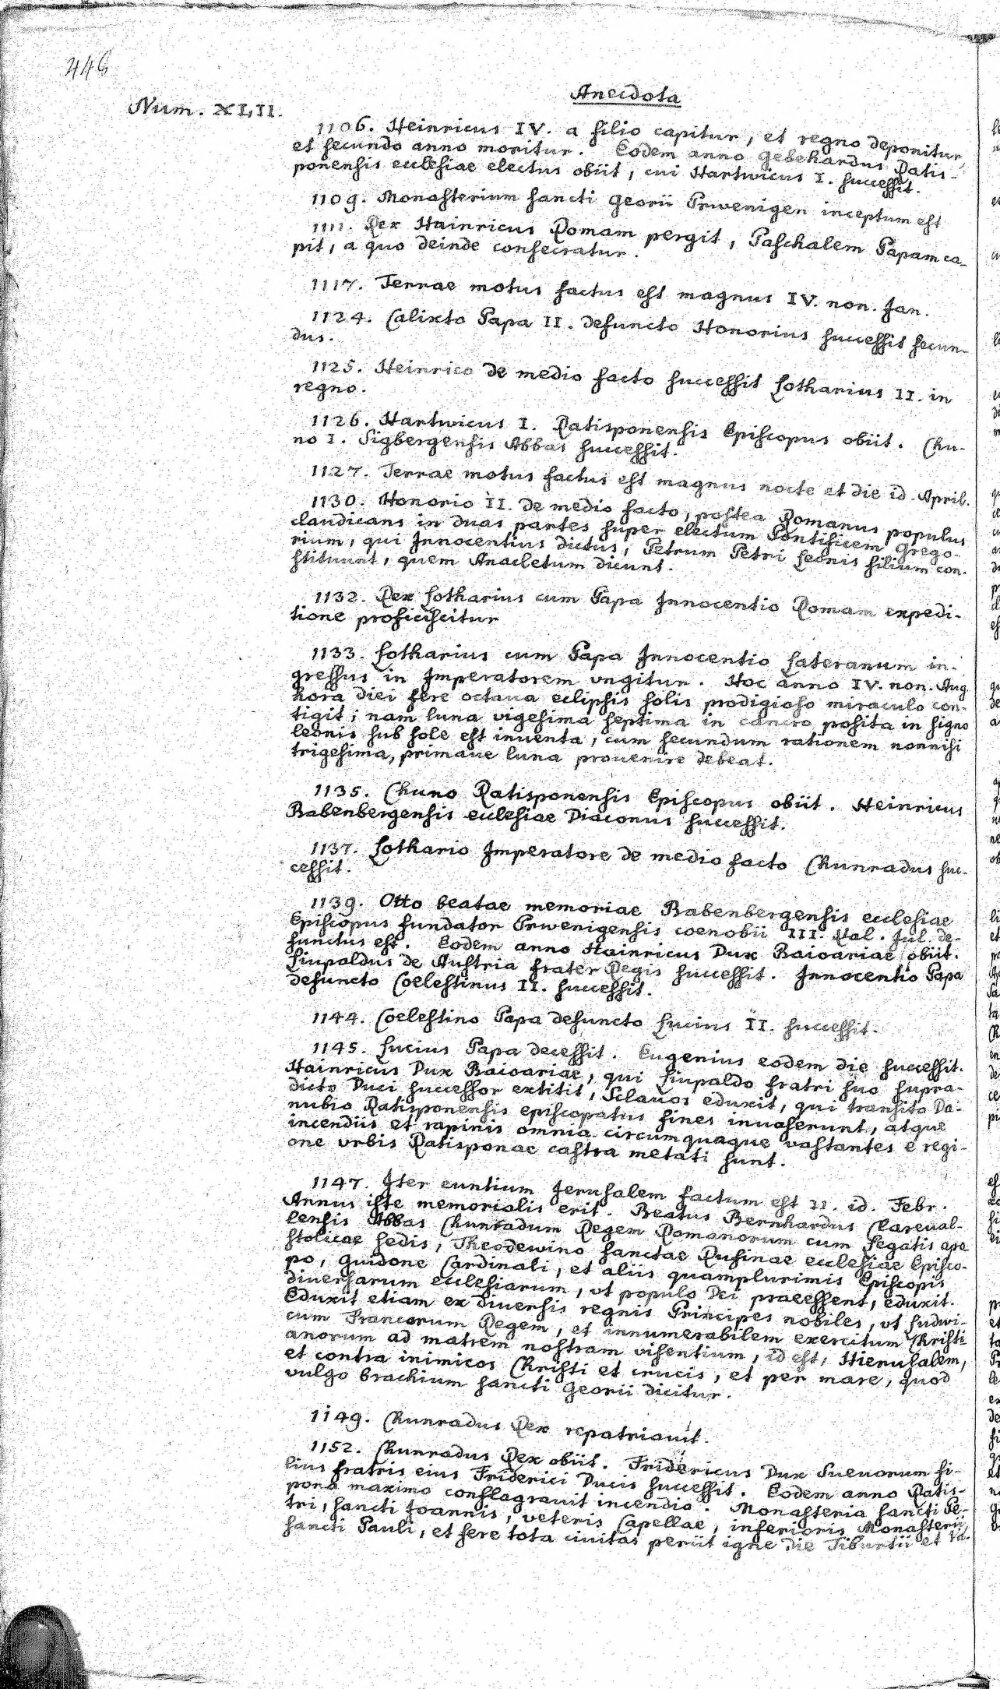 446
Anecdota
Num. XLII.
1106. Heinricus IV. a filio capitur, et regno deponitur,
et secundo anno moritur. Eodem anno Gebehardus Ratis-
ponensis ecclesiae electus obiit, cui Hartwicus I. successit.
1109. Monasterium sancti Georii Prwenigen inceptum est
1111. Rex Hainricus Romam pergit, Paschalem Papam ca-
pit, a quo deinde consecratur.
1117. Terrae motus factus est magnus IV. non. Jan.
1124. Calixto Papa II. defuncto Honorius successit secun-
dus.
1125. Heinrico de medio facto successit Lotharius II. in
regno.
1126. Hartwicus I. Ratisponensis Episcopus obiit. Chu-
no I. Sigbergensis Abbas successit.
1127. Terrae motus factus est magnus nocte et die id. April.
1130. Honorio II. de medio facto, postea Romanus populus
claudicans in duas partes super electum Pontificem Grego-
rium, qui Innocentius dictus, Petrum Petri Leonis filium con-
stituunt, quem Anacletum dicunt.
1132. Rex Lotharius cum Papa Innocentio Romam expedi-
tione proficiscitur
1133. Lotharius cum Papa Innocentio Lateranum in-
gressus in Imperatorem vngitur. Hoc anno IV. non. Aug
hora diei fere octaua eclipsis solis prodigioso miraculo con-
tigit; nam luna vigesima septima in cancro posita in signo
leonis sub sole est inuenta, cum secundum rationem nonnisi
trigesima, primaue luna prouenire debeat.
1135. Chuno Ratisponensis Episcopus obiit. Heinricus
Babenbergensis ecclesiae Diaconus successit.
1137. Lothario Imperatore de medio facto Chunradus suc-
cessit.
1139. Otto beatae memoriae Babenbergensis ecclesiae
Episcopus fundator Prwenigensis coenobii III. Kal. Jul. de-
functus est. Eodem anno Hainricus Dux Baioariae obiit.
Liupaldus de Austria frater Regis successit. Innocentio Papa
defuncto Coelestinus II. successit.
1144. Coelestino Papa defuncto Lucius II. successit.
1145. Lucius Papa decessit. Eugenius eodem die successit.
Hainricus Dux Baioariae, qui Liupaldo fratri suo supra-
dicto Duci successor extitit, Sclauos eduxit, qui transito Da-
nubio Ratisponensis episcopatus fines inuaserunt, atque
incendiis et rapinis omnia circumquaque vastantes e regi-
one vrbis Ratisponae castra metati sunt.
1147. Iter euntium Jerusalem factum est II. id. Febr.
Annus iste memorialis erit. Beatus Bernhardus Clareual-
lensis Abbas Chunradum Regem Romanorum cum Legatis apo
stolicae sedis, Theodewino sanctae Rufinae ecclesiae Episco-
po, Guidone Cardinali, et aliis quamplurimis Episcopis
diuersarum ecclesiarum, vt populo Dei praeessent, eduxit.
Eduxit etiam ex diuersis regnis Principes nobiles, vt Ludwi-
cum Francorum Regem, et innumerabilem exercitum Christi
anorum ad matrem nostram visentium, id est, Hierusalem,
et contra inimicos Christi et crucis, et per mare, quod
vulgo brachium sancti Georii dicitur.
1149. Chunradus Rex repatriauit.
1152. Chunradus Rex obiit. Fridericus Dux Sueuorum fi-
lius fratris eius Friderici Ducis successit. Eodem anno Ratis-
pona maximo conflagrauit incendio. Monasteria sancti Pe-
tri, sancti Joannis, veteris Capellae, inferioris Monasterii,
sancti Pauli, et fere tota ciuitas periit igne die Tiburtii et Va-